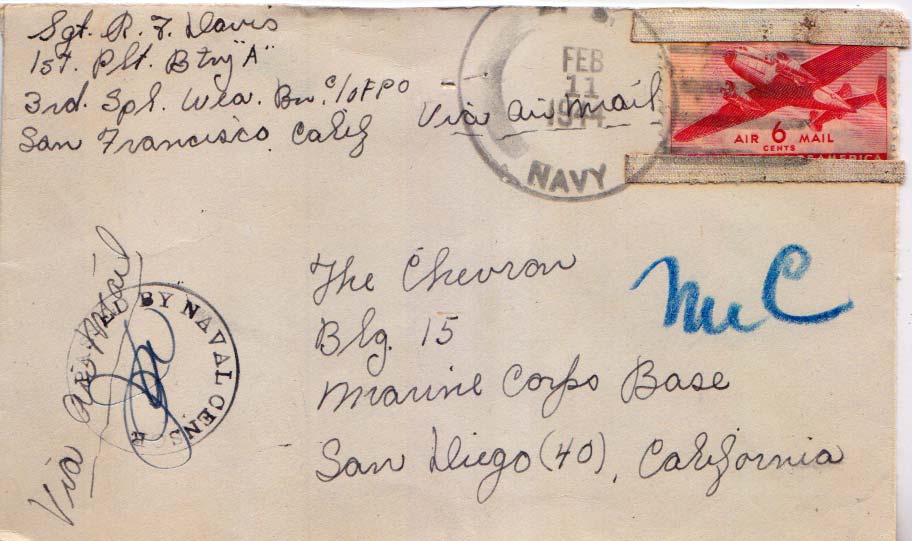 Sgt. R. F. Davis
1st. Plt. Btry "A"
3rd. Spl. Wea. Bn. c/o FPO
San Francisco, Calif
Via Air Mail
FEB
11
1944
NAVY
AIR 6 MAIL
CENTS
OF AMERICA
The Chevron
Blg. 15
Marine Corps Base
San Diego (40), California
MC
Via Air Mail
BY NAVAL CENS